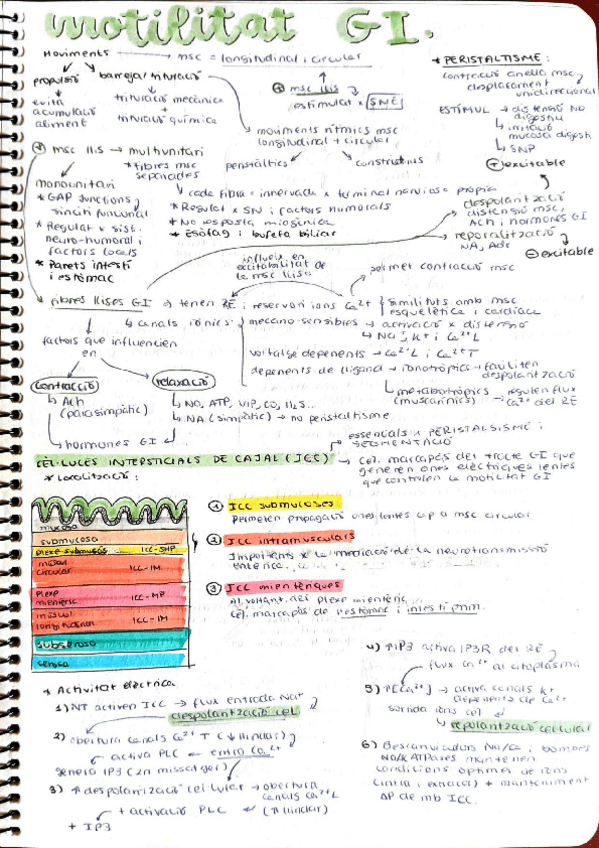 motilitat GI.
Moviments → msc = longitudinal i circular
propulsió
evita
acumulació
aliment
barreja/trituració
trituració mecànica
+
trituració química
⊕ msc llis
estimulat x SNE
moviments rítmics msc
longitudinal + circular
peristàltics
constrictius
* PERISTALTISME:
contracció anella msc,
desplaçament
unidireccional
ESTÍMUL → distensió
→ irritació
mucosa digest.
→ SNP
⊕ excitable
despolarització
distensió msc,
Ach i hormones GI
repolarització
NA, Adr
⊖ excitable
msc llis → multiunitari
* fibres msc
separades
↓ cada fibra = innervada x terminal nerviosa pròpia
* Regulat x SN i factors humorals
* No resposta miogènica
* Esòfag i bufeta biliar
monounitari
* GAP junctions,
sinciti funcional
* Regulat x sist.
neuro-humoral i
factors locals
* Parets intestí
i estómac
influeix en
excitabilitat de
la msc llisa
permet contracció msc
fibres llises GI → tenen RE i reservori ions Ca²⁺
similituts amb msc
esquelètica i cardíaca
canals iònics
mecano-sensibles → activació x distensió
↳ Na⁺, K⁺ i Ca²⁺L
voltatge depenents → Ca²⁺L i Ca²⁺T
depenents de lligand → ionotròpics → faciliten
despolarització
↳ metabotròpics → regulen flux
(muscarínics) Ca²⁺ del RE
factors que influencien
en
contracció
↳ Ach
(parasimpàtic)
↳ hormones GI
relaxació
↳ NO, ATP, VIP, CO, H₂S...
↳ NA (simpàtic) → no peristaltisme
CÈL·LULES INTERSTICIALS DE CAJAL (ICC)
essencials x PERISTALSISME i
SEGMENTACIÓ
↳ cèl. marcapàs del tracte GI que
generen ones elèctriques lentes
que controlen la motilitat GI
* Localització:
mucosa
submucosa
plexe submucós ICC-SMP
múscul
circular ICC-IM
Plexe
mientèric ICC-MP
múscul
longitudinal ICC-IM
subserosa
serosa
① ICC SUBMUCOSES
Permeten propagació ones lentes cap a msc circular
② ICC intramusculars
Importants x la mediació de la neurotransmissió
entèrica.
③ ICC mientèriques
Al voltant del plexe mientèric
Cèl. marcapàs de l'estómac i intestí prim.
* Activitat elèctrica
1) NT activen ICC → flux entrada Na⁺
despolarització cel.
2) obertura canals Ca²⁺ T (↓ llindar)
activa PLC ← entra Ca²⁺
genera IP3 (2n missatger)
3) ↑ despolarització cel·lular → obertura
canals Ca²⁺L
(↑ llindar)
+ activació PLC
+ IP3
4) ↑IP3 activa IP3R del RE
flux Ca²⁺ al citoplasma
5) ↑[Ca²⁺] → activa canals K⁺
depenents de Ca²⁺
sortida ions cel
↳ repolarització cel·lular
6) Bescanviadors Na/Ca i bombes
Na/K ATPases mantenen
condicions òptimes de ions
(intra i extracel) + manteniment
ΔP de mb ICC.